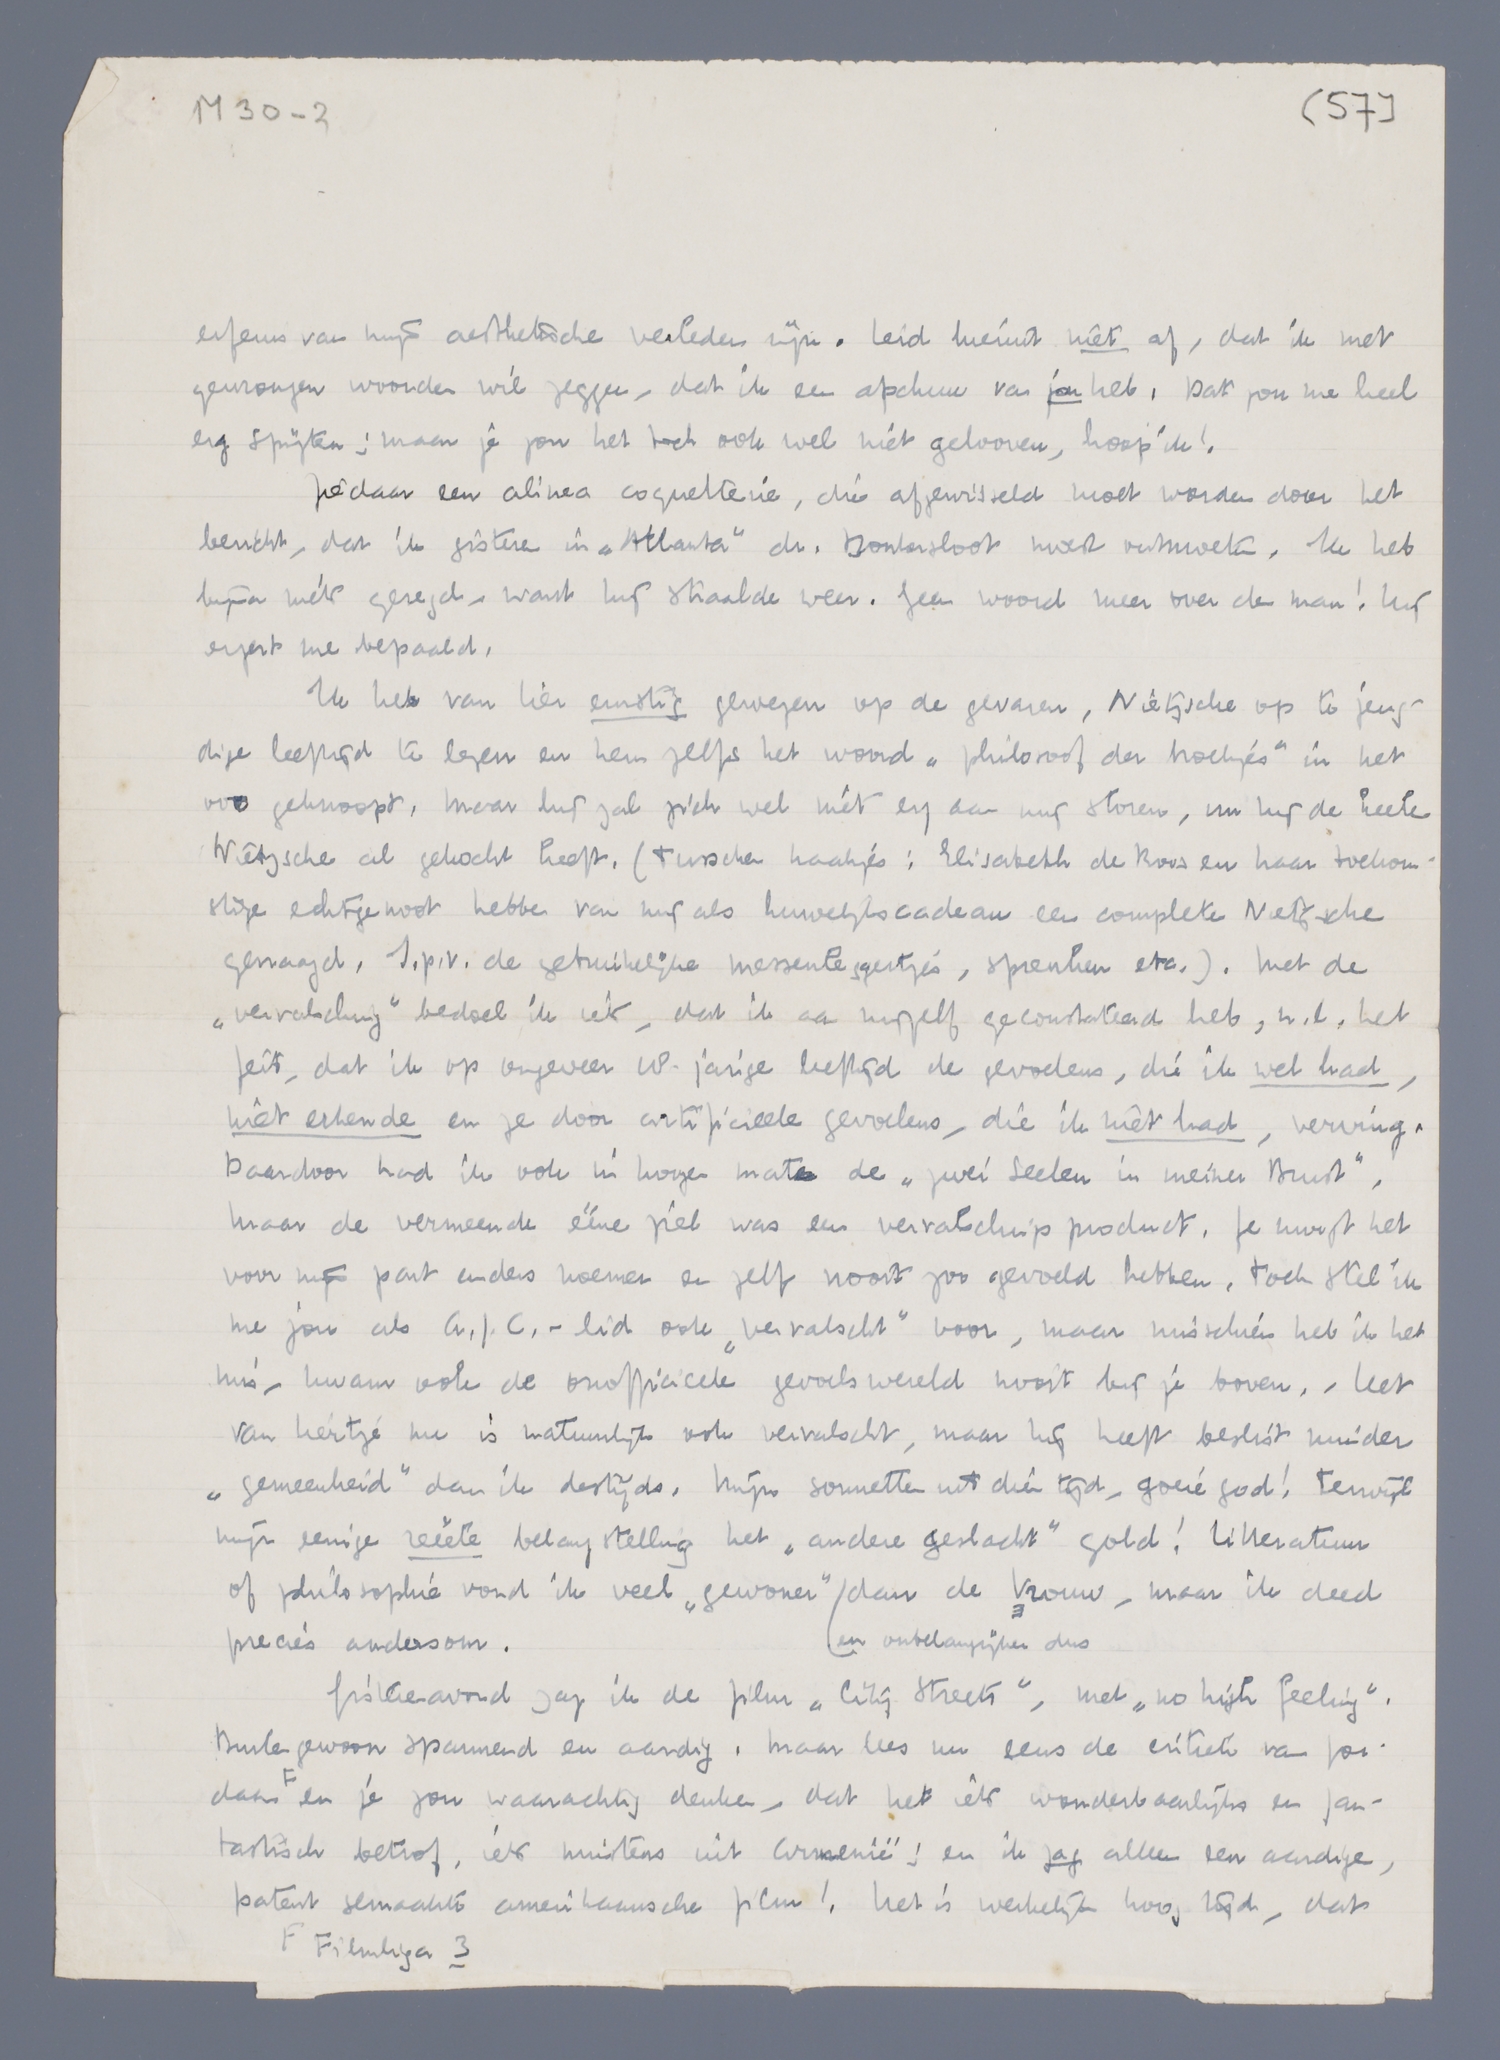 M 30-2
(57)
erfenis van mijn aesthetische verleden zijn. Leid hieruit niet af, dat ik met
gewrongen woorden wil zeggen, dat ik een afschuw van jou heb. Dat zou me heel
erg spijten; maar je zou het toch ook wel niet gelooven, hoop ik!.
Ziedaar een alinea coquetterie, die afgewisseld moet worden door het
bericht, dat ik gisteren in „Atlanta" dr. Donkersloot moest ontmoeten. Ik heb
bijna niets gezegd, want hij straalde weer. Geen woord meer over den man! Hij
ergert me bepaald.
Ik heb van Lier ernstig gewezen op de gevaren, Nietzsche op te jeug-
dige leeftijd te lezen en hem zelfs het woord „philosoof der trochijs" in het
oor geknoopt. Maar hij zal zich wel niet erg aan mij storen, nu hij de heele
Nietzsche al gekocht heeft. (Tusschen haakjes: Elisabeth de Roos en haar toekom-
stige echtgenoot hebben van mij als huwelijkscadeau een complete Nietzsche
gevraagd. I.p.v. de gebruikelijke messenleggertjes, spreuken etc.). Met de
„vervalsching" bedoel ik iets, dat ik aan mijzelf geconstateerd heb, n.l. het
feit, dat ik op ongeveer 18-jarige leeftijd de gevoelens, die ik wel had,
niet erkende en ze door artificieele gevoelens, die ik niet had, verving.
Daardoor had ik ook in hooge mate de „zwei Seelen in meiner Brust",
maar de vermeende ééne ziel was een vervalschingsproduct. Je moogt het
voor mijn part anders noemen en zelf nooit zoo gevoeld hebben. Toch stel ik
me jou als A.J.C.-lid ook „vervalscht" voor, maar misschien heb ik het
mis, kwam ook de onofficieele gevoelswereld nooit bij je boven. - Het
van Liertje nu is natuurlijk ook vervalscht, maar hij heeft beslist minder
„gemeenheid" dan ik destijds. Mijn sonnetten uit dien tijd, goeie god! Terwijl
mijn eenige reëele belangstelling het „andere geslacht" gold! Litteratuur
of philosophie vond ik veel „gewoner" (dan de Vrouw, maar ik deed
precies andersom.
(en onbelangrijker dus
Gisterenavond zag ik de film „City Streets", met „no high feeling".
Buitengewoon spannend en aardig. Maar lees nu eens de critiek van Jor-
daan F en je zou waarachtig denken, dat het iets wonderbaarlijks en fan-
tastisch betrof, iets minstens uit Armenië; en ik zag alleen een aardige,
patent gemaakte amerikaansche film!. Het is werkelijk hoog tijd, dat
F Filmliga 3